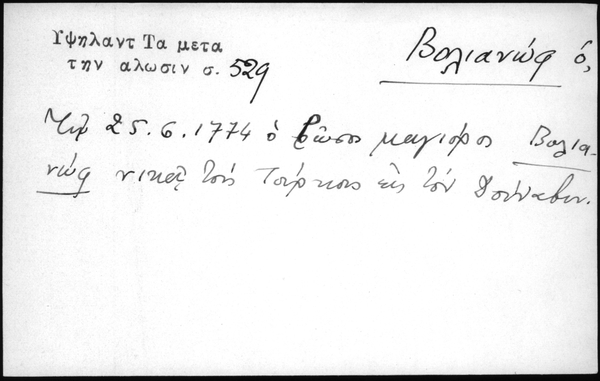 Υψηλαντ Τα μετα
την αλωσιν σ. 529
Βολιανώφ ὁ,
Τῇ 25.6.1774 ὁ Ρῶσος μαγιόρος Βολια-
νώφ νικᾷ τοὺς Τούρκους εἰς τὸν Δούναβιν.